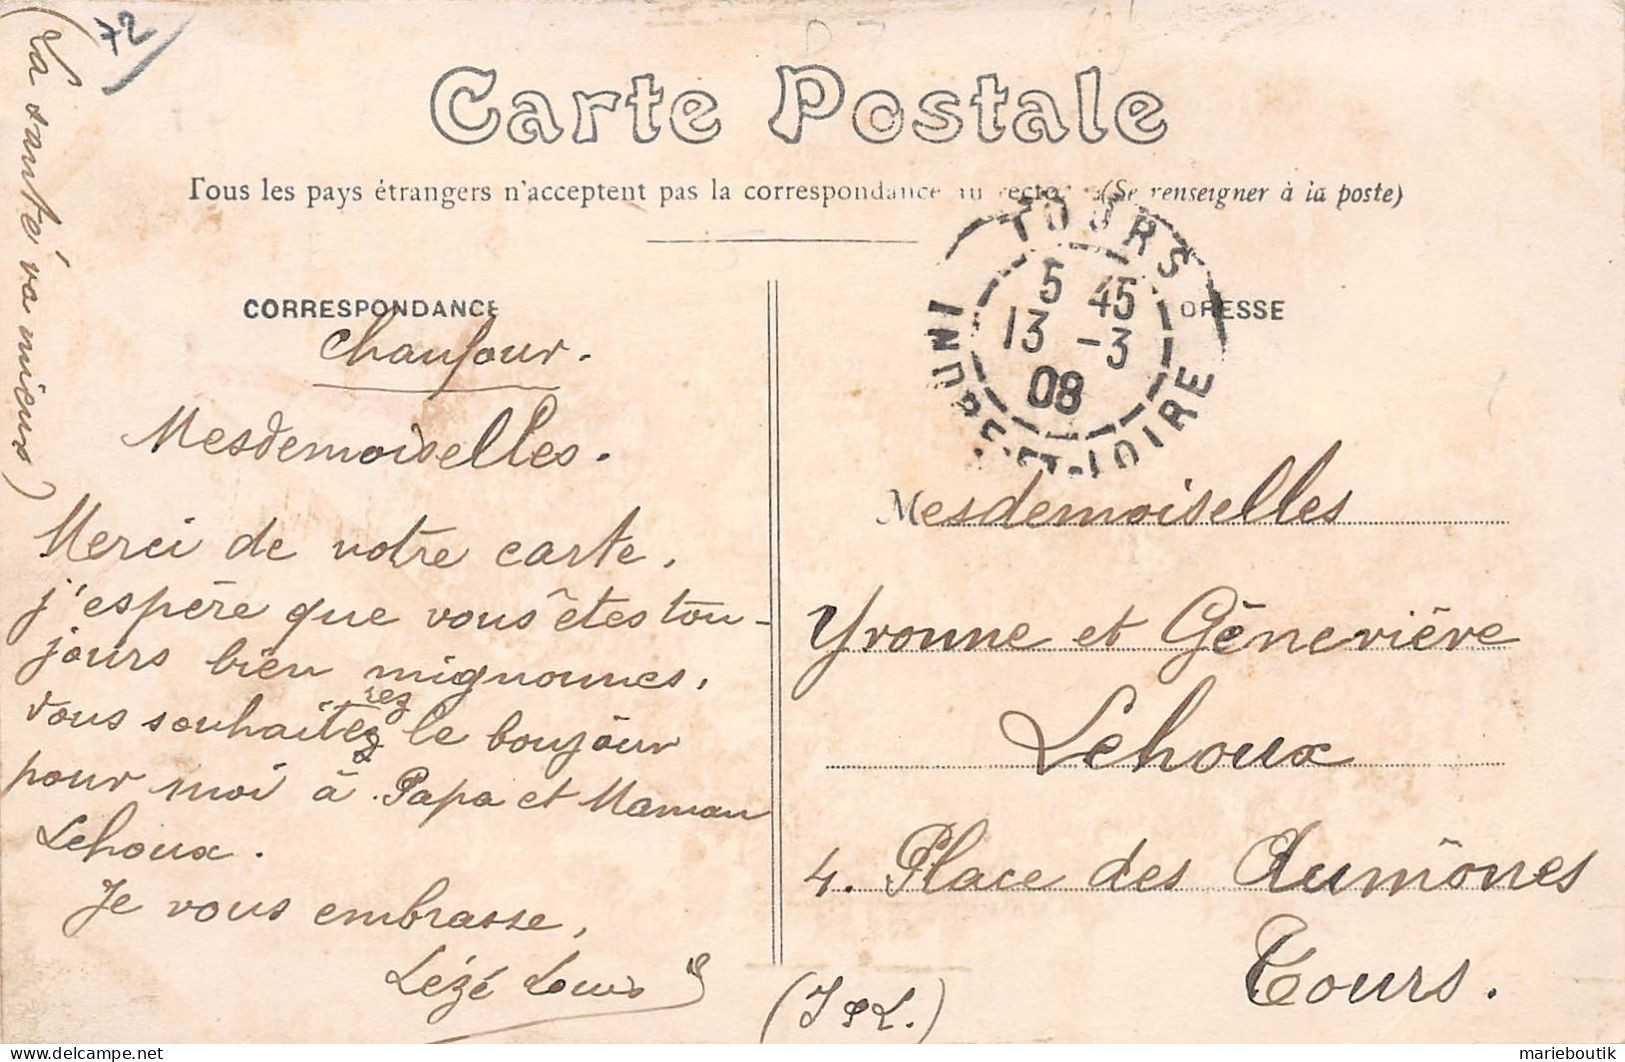 72
Carte Postale
Tous les pays étrangers n'acceptent pas la correspondance au recto (Se renseigner à la poste)
CORRESPONDANCE
Chaufour.
Mesdemoiselles.
Merci de votre carte,
j'espère que vous êtes tou-
jours bien mignonnes,
vous souhaiterez le boujour
pour moi à Papa et Maman
Lehoux.
Je vous embrasse,
Lézé Louis
(La santé va mieux)
TOURS
5 45
13 -3
08
INDRE-ET-LOIRE
ADRESSE
Mesdemoiselles
Yvonne et Géneviève
Lehoux
4. Place des Aumônes
Tours.
(I & L.)
marieboutik